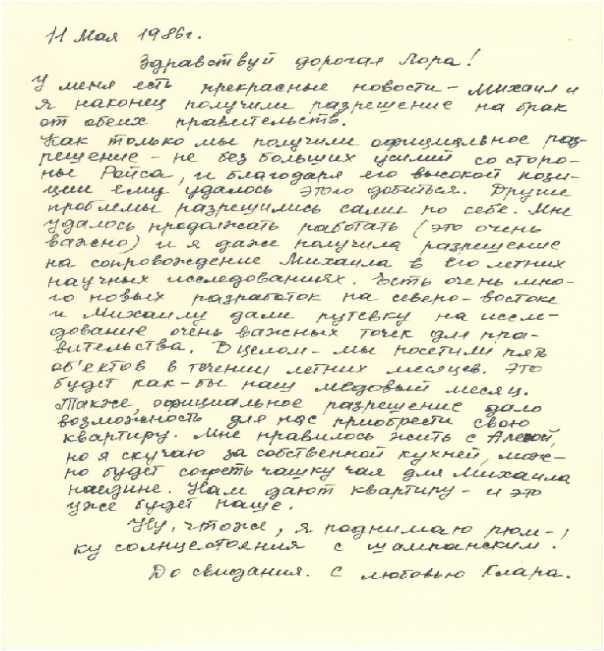 11 Мая 1986г.
Здравствуй дорогая Лора!
У меня есть прекрасные новости - Михаил и
я наконец получили разрешение на брак
от обеих правительств.
Как только мы получили официальное раз-
решение - не без больших усилий со сторо-
ны Ройса, и благодаря его высокой пози-
ции ему удалось этого добиться. Другие
проблемы разрешились сами по себе. Мне
удалось продолжать работать (это очень
важно) и я даже получила разрешение
на сопровождение Михаила в его летних
научных исследованиях. Есть очень мно-
го новых разработок на северо-востоке
и Михаилу дали путевку на иссле-
дование очень важных точек для пра-
вительства. В целом - мы посетили пять
об'ектов в течении летних месяцев. Это
будет как-бы наш медовый месяц.
Также, официальное разрешение дало
возможность для нас приобрести свою
квартиру. Мне нравилось жить с Алексой,
но я скучаю за собственной кухней, мож-
но будет согреть чашку чая для Михаила
наедине. Нам дают квартиру - и это
уже будет наше.
Ну, чтоже, я поднимаю рюм-
ку солнцестояния с шампанским.
До свидания. С любовью Клара.